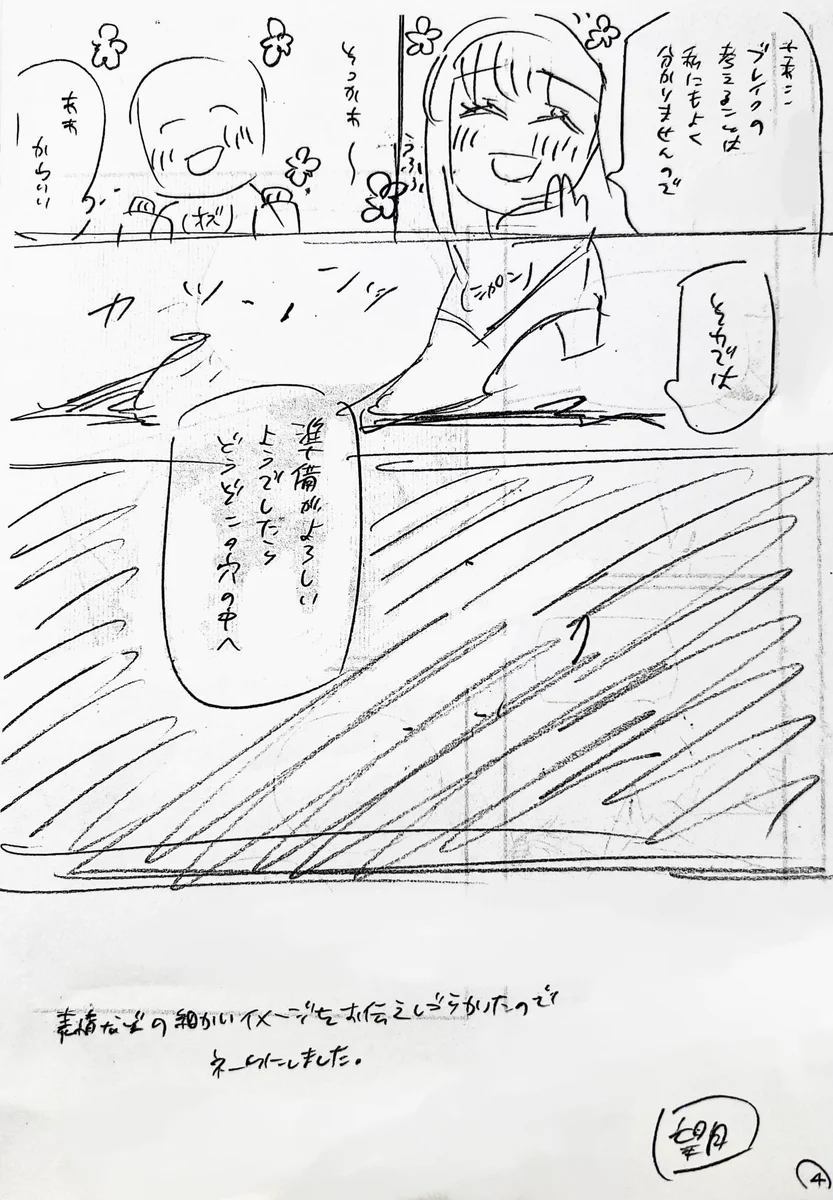 ブレイクの
考えることは
私にもよく
分かりませんので
うふふ
そっかぁ～
(ボブ)
ああ
かわいい
(シャロン)
準備がよろしい
ようでしたら
どうぞこの穴の中へ
表情などの細かいイメージをお伝えしづらかったので
ネームにしました。
望月
4